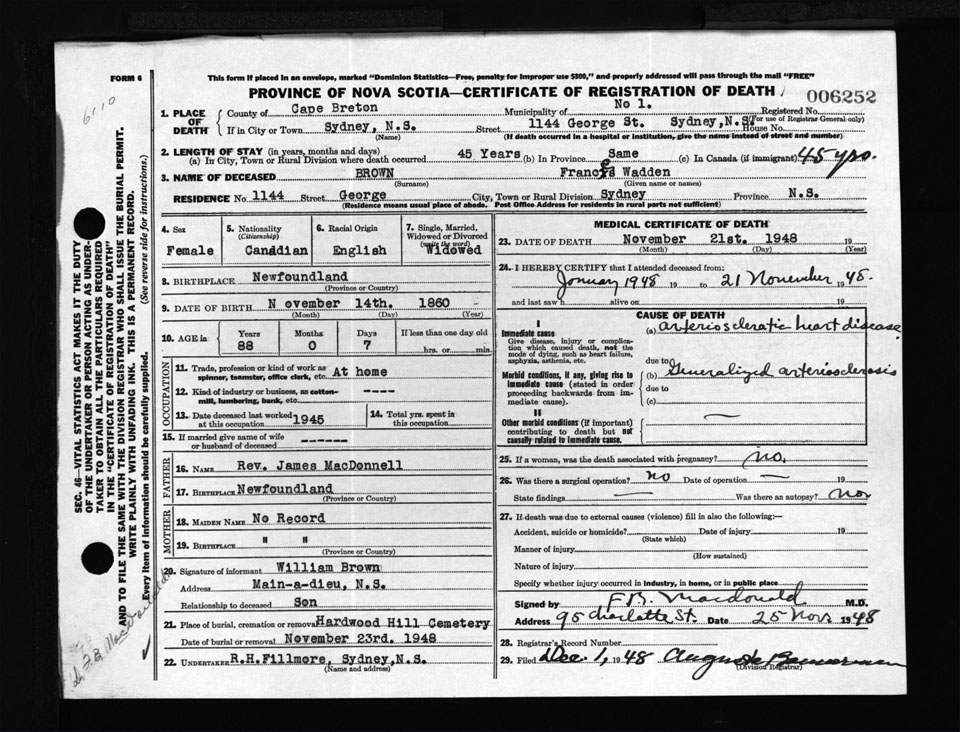 FORM 6
6110
This form if placed in an envelope, marked "Dominion Statistics—Free, penalty for improper use $300," and properly addressed will pass through the mail "FREE"
PROVINCE OF NOVA SCOTIA—CERTIFICATE OF REGISTRATION OF DEATH
006252
1. PLACE OF DEATH { County of Cape Breton Municipality of No 1. Registered No.
If in City or Town Sydney, N.S. Street 1144 George St. Sydney, N.S. House No. (For use of Registrar General only)
(Name) (If death occurred in a hospital or institution, give the name instead of street and number)
2. LENGTH OF STAY (in years, months and days)
(a) In City, Town or Rural Division where death occurred 45 Years (b) In Province Same (c) In Canada (if immigrant) 45 yrs.
3. NAME OF DECEASED BROWN Frances Wadden
(Surname) (Given name or names)
RESIDENCE No. 1144 Street George City, Town or Rural Division Sydney Province N.S.
(Residence means usual place of abode. Post Office Address for residents in rural parts not sufficient)
4. Sex Female
5. Nationality (Citizenship) Canadian
6. Racial Origin English
7. Single, Married, Widowed or Divorced (write the word) Widowed
8. BIRTHPLACE Newfoundland
(Province or Country)
9. DATE OF BIRTH N ovember 14th. 1860
(Month) (Day) (Year)
10. AGE in Years 88 Months 0 Days 7 If less than one day old hrs. or min.
OCCUPATION
11. Trade, profession or kind of work as spinner, teamster, office clerk, etc. At home
12. Kind of industry or business, as cotton-mill, lumbering, bank, etc. ----
13. Date deceased last worked at this occupation 1945
14. Total yrs. spent in this occupation
15. If married give name of wife or husband of deceased -------
FATHER
16. NAME Rev. James MacDonnell
17. BIRTHPLACE Newfoundland
(Province or Country)
MOTHER
18. MAIDEN NAME No Record
19. BIRTHPLACE " "
(Province or Country)
20. Signature of informant William Brown
Address Main-a-dieu, N.S.
Relationship to deceased Son
21. Place of burial, cremation or removal Hardwood Hill Cemetery
Date of burial or removal November 23rd. 1948
22. UNDERTAKER R.H.Fillmore, Sydney, N.S.
(Name and address)
MEDICAL CERTIFICATE OF DEATH
23. DATE OF DEATH November 21st. 1948 19
(Month) (Day) (Year)
24. I HEREBY CERTIFY that I attended deceased from:
January 1948 19 to 21 November 1948.
and last saw h alive on 19
CAUSE OF DEATH
I
Immediate cause (a) arteriosclerotic heart disease
Give disease, injury or complication which caused death, not the mode of dying, such as heart failure, asphyxia, asthenia, etc.
due to
Morbid conditions, if any, giving rise to immediate cause (stated in order proceeding backwards from immediate cause). (b) Generalized arteriosclerosis
due to
(c)
II
Other morbid conditions (if important) contributing to death but not causally related to immediate cause. —
25. If a woman, was the death associated with pregnancy? no.
26. Was there a surgical operation? no Date of operation — 19
State findings — Was there an autopsy? no
27. If death was due to external causes (violence) fill in also the following:—
Accident, suicide or homicide? Date of injury 19
(State which)
Manner of injury
(How sustained)
Nature of injury
Specify whether injury occurred in industry, in home, or in public place
Signed by F.B. Macdonald M.D.
Address 95 Charlotte St. Date 25 Nov 1948
28. Registrar's Record Number
29. Filed Dec. 1, 1948
(Division Registrar)
SEC. 46—VITAL STATISTICS ACT MAKES IT THE DUTY
OF THE UNDERTAKER OR PERSON ACTING AS UNDER-
TAKER TO OBTAIN ALL THE PARTICULARS REQUIRED
IN THE "CERTIFICATE OF REGISTRATION OF DEATH"
AND TO FILE THE SAME WITH THE DIVISION REGISTRAR WHO SHALL ISSUE THE BURIAL PERMIT.
WRITE PLAINLY WITH UNFADING INK. THIS IS A PERMANENT RECORD.
Every item of information should be carefully supplied. (See reverse side for instructions.)
Dr. F.B. MacDonald